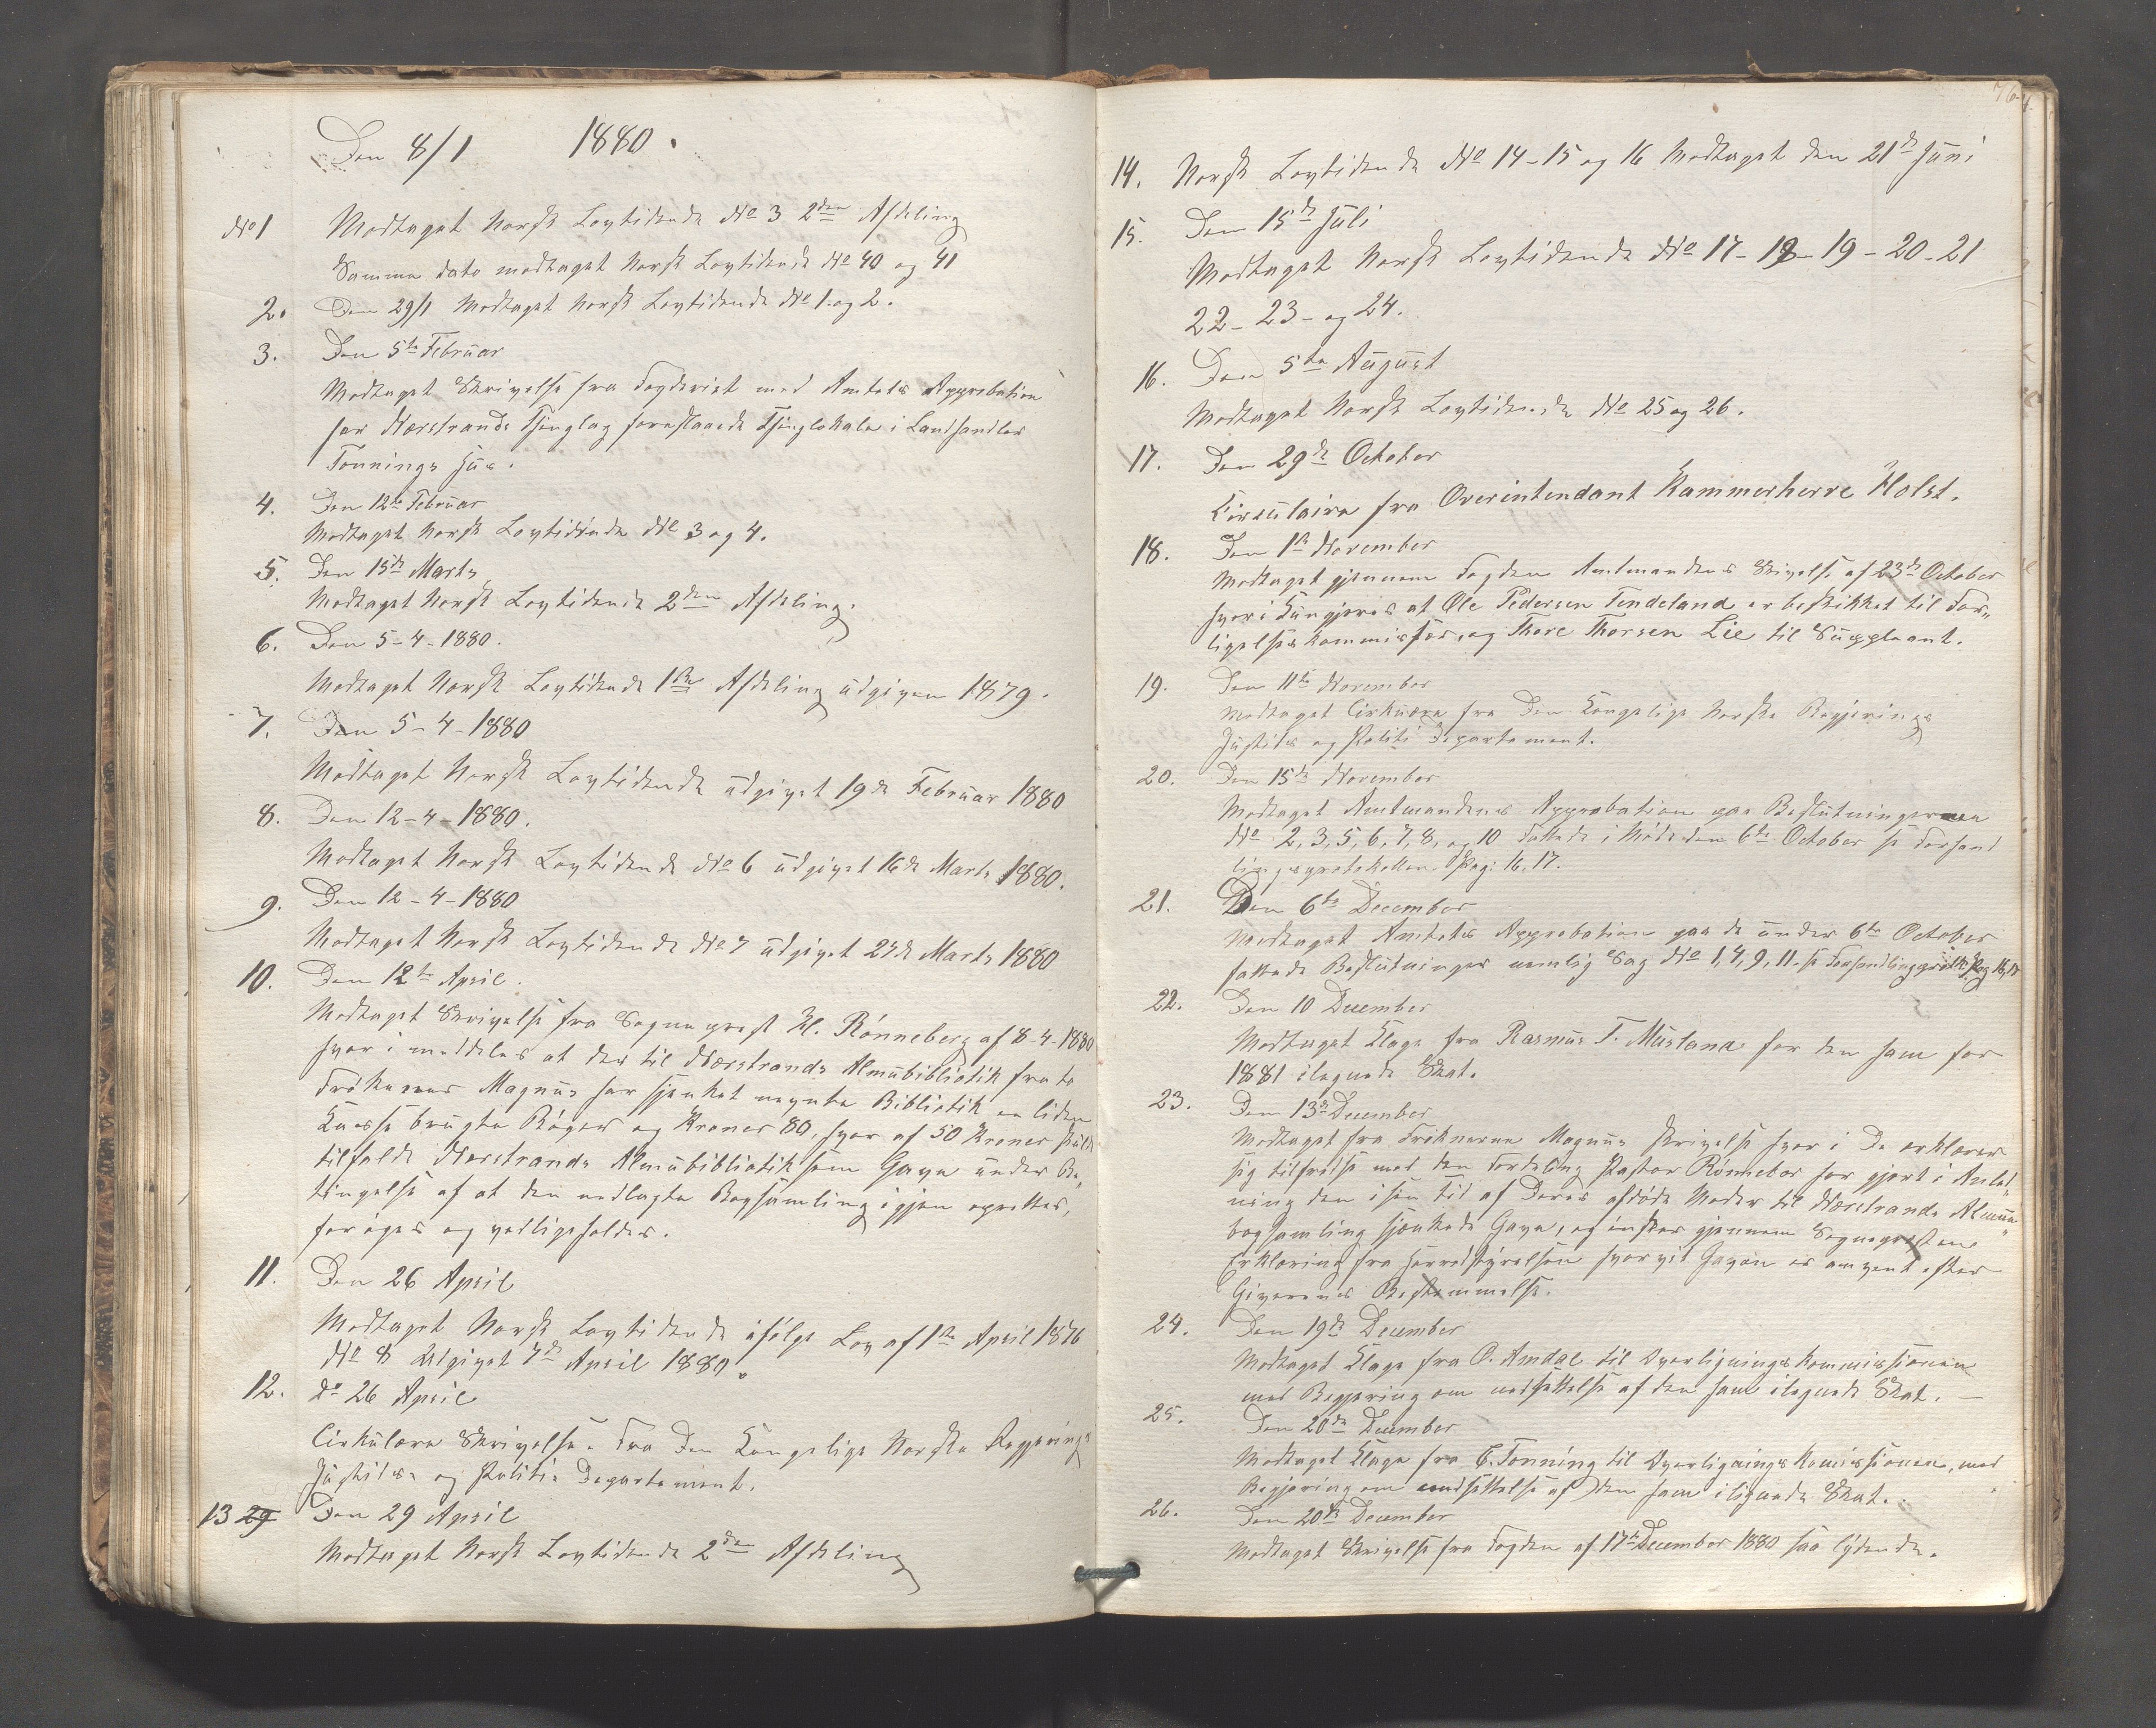 Den 8/1 1880.
No 1 Modtaget Norsk Lovtidende No 3 2den Afdeling
Samme dato modtaget Norsk Lovtidende No 40 og 41
2. Den 29/1 Modtaget Norsk Lovtidende No 1 og 2.
3. Den 5te Februar
Modtaget Skrivelse fra Fogderiet med Amtets Approbation
for Nærstrands Thinglag foreslaaede Thinglokale i Landhandler
Tonnings Hus.
4. Den 12te Februar
Modtaget Norsk Lovtidende No 3 og 4.
5. Den 15de Marts
Modtaget Norsk Lovtidende 2den Afdeling.
6. Den 5-4-1880.
Modtaget Norsk Lovtidende 1ste Afdeling udgiven 1879.
7. Den 5-4-1880
Modtaget Norsk Lovtidende udgivet 19de Februar 1880
8. Den 12-4-1880.
Modtaget Norsk Lovtidende No 6 udgivet 16de Marts 1880.
9. Den 12-4-1880
Modtaget Norsk Lovtidende No 7 udgivet 24de Marts 1880
10. Den 12te April.
Modtaget Skrivelse fra Sogneprest Kl. Rønneberg af 8-4-1880
hvor i meddeles at der til Nærstrands Almubibliotik fra to
Frøkener Magnus har skjenket nevnte Bibliotik en liden
Kasse brugte Bøger og Kroner 80, hvor af 50 Kroner skulde
tilfalde Nerstrands Almubibliotik som Gave under Be„
tingelse af at den nedlagte Bogsamling igjen oprettes,
forøges og vedligeholdes.
11. Den 26 April
Modtaget Norsk Lovtidende ifølge Lov af 1ste April 1876
No 8 Udgivet 7de April 1880.
12. Do 26 April
Cirkulære Skrivelse. Fra Den Kongelige Norske Regjerings
Justits- og Politie Departement.
13 29 Den 29 April
Modtaget Norsk Lovtidende 2den Afdeling
14. Norsk Lovtidende No 14-15 og 16 Modtaget den 21de Juni
15. Den 15de Juli
Modtaget Norsk Lovtidende No 17-18-19-20-21
22-23-og 24.
16. Den 5te August
Modtaget Norsk Lovtidende No 25 og 26.
17. Den 29de October
Cirkulaire fra Overintendant Kammerherre Holst.
18. Den 1ste November
Modtaget gjennem Fogden Amtmandens Skrivelse af 23de October
hvor i Kungjøres at Ole Pedersen Tendeland er beskikket til For„
ligelseskommissær, og Thore Thorsen Lie til Suppleant.
19. Den 11te November
Modtaget Cirkuære fra Den Kongelige Norske Regjerings
Justits og Politi Departement.
20. Den 15de November
Modtaget Amtmandens Approbation paa Beslutningerne
No 2, 3, 5, 6, 7, 8, og 10 Fattede i Møde den 6te October se Forhand
lingsprotokollen Pag: 16, 17.
21. Den 6te December
Modtaget Amtets Approbation paa de under 6te October
fattede Beslutninger nemlig Sag No 1, 4, 9, 11. se Forhandlingsprotk. Pag 16, 17
22. Den 10 December
Modtaget Klage fra Rasmus T. Musland for den ham for
1881 ilegnede Skat.
23. Den 13de December
Modtaget fra Frøknerne Magnus Skrivelse hvor i De erklærer
sig tilfredse med den Fordeling Pastor Rønneber har gjort i Anled„
ning den i sin tid af Deres afdøde Moder til Nærstrands Almue„
bogsamling skjænkede Gave, og ønsker gjennem Sognepresten
Erklæring fra Herredstyrelsen hvorvit Gaven er anvent efter
Giverens Bestemmelse.
24. Den 19de December
Modtaget Klage fra O. Amdal til Overligningskommissionen
med Begjæring om nedsættelse af den ham ilegnede Skat.
25. Den 20de December
Modtaget Klage fra C. Tonning til Overligningskomissionen, med
Begjæring om nedsættelse af den ham ilignede Skat.
26. Den 20de December
Modtaget Skrivelse fra Fogden af 17de December 1880 saa lydende.